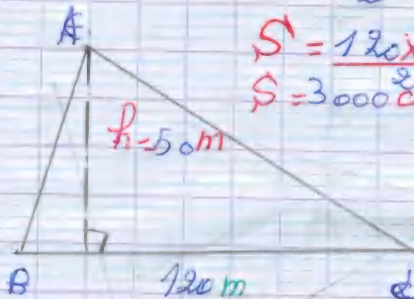 A
S = 120x
S = 3000
h = 50 m
B
120 m